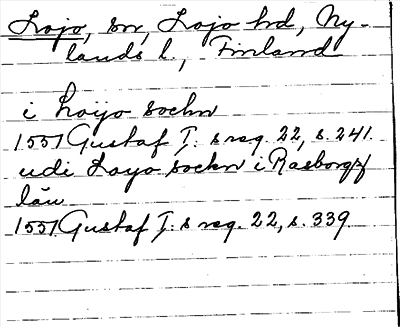 Lojo, sn, Lojo hd, Ny-
lands l., Finland
i Loyo sochn
1557 Gustaf I:s reg. 22, s. 241.
udi Loyo sochn i Rasborgz
län
1557 Gustaf I:s reg. 22, s. 339